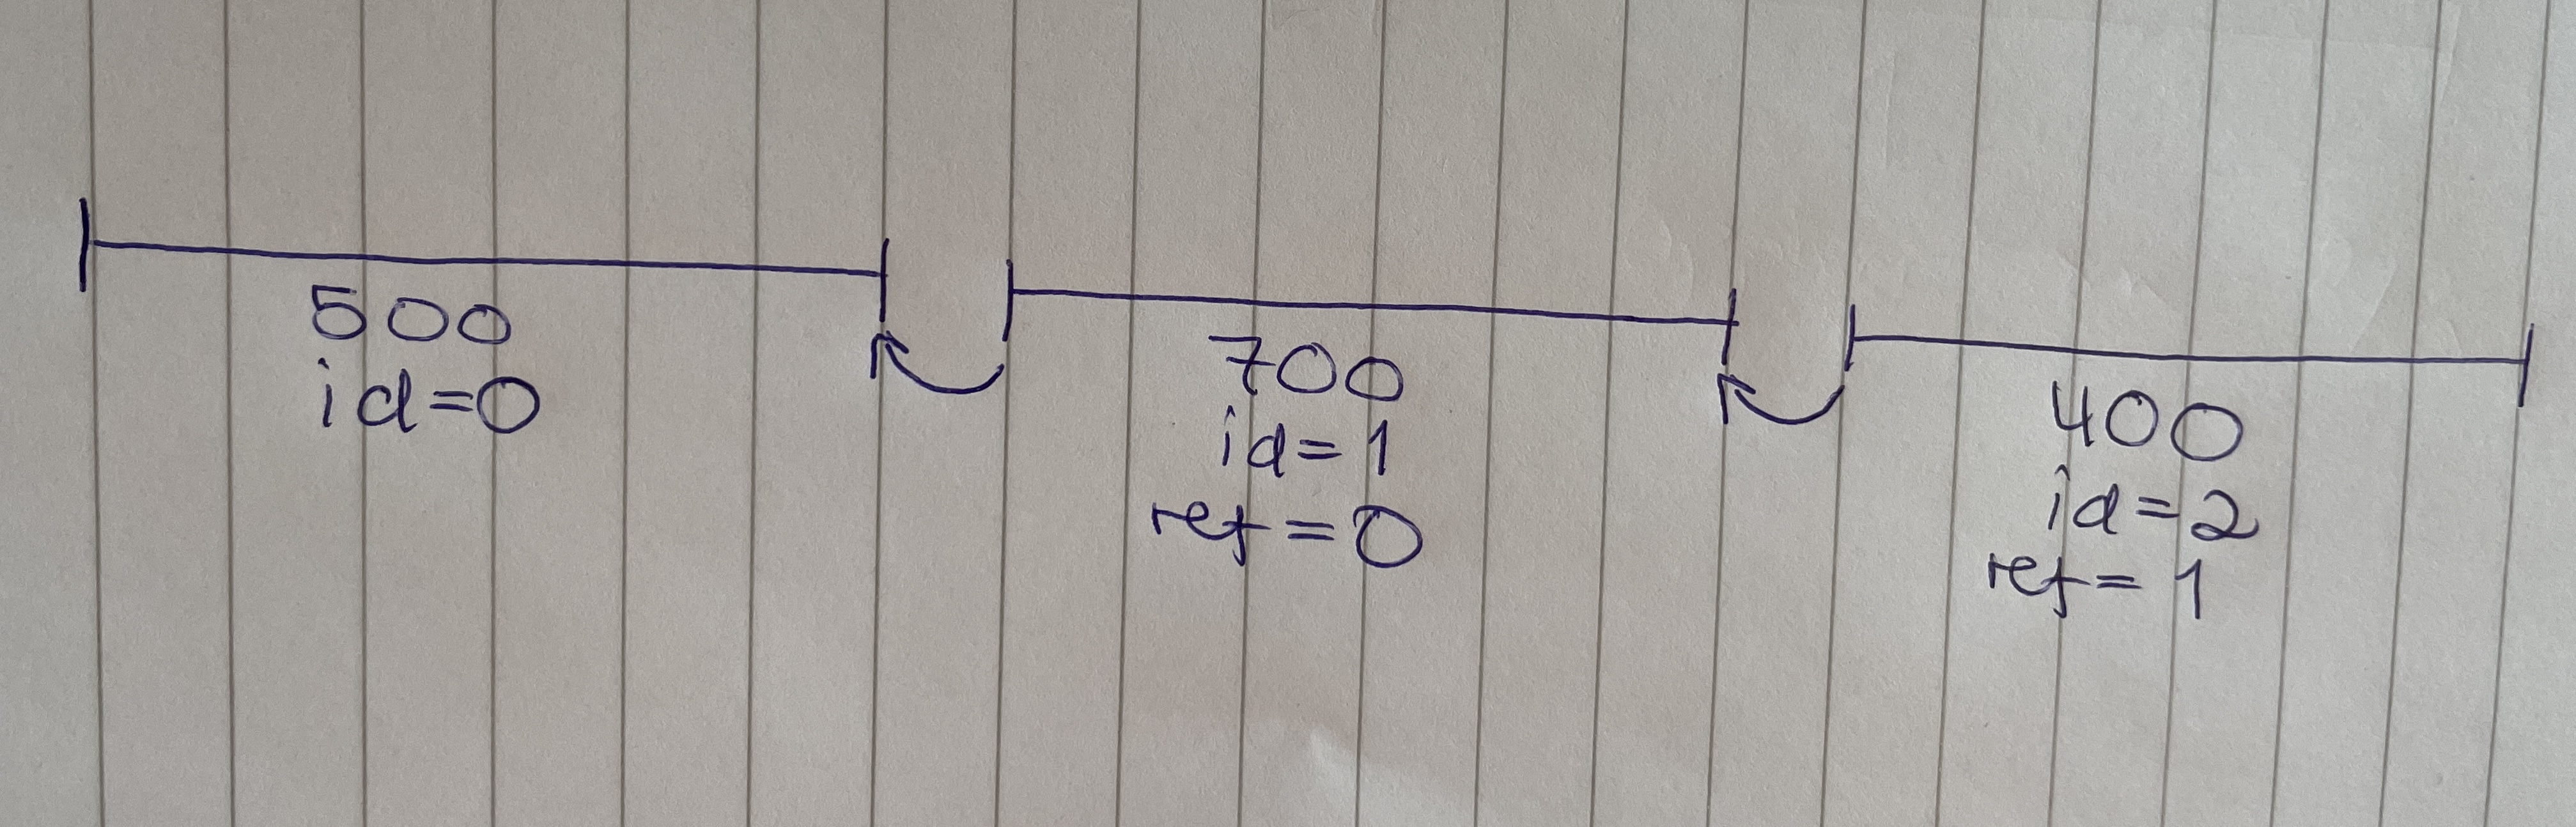 500
id=0
700
id=1
ref=0
400
id=2
ref=1